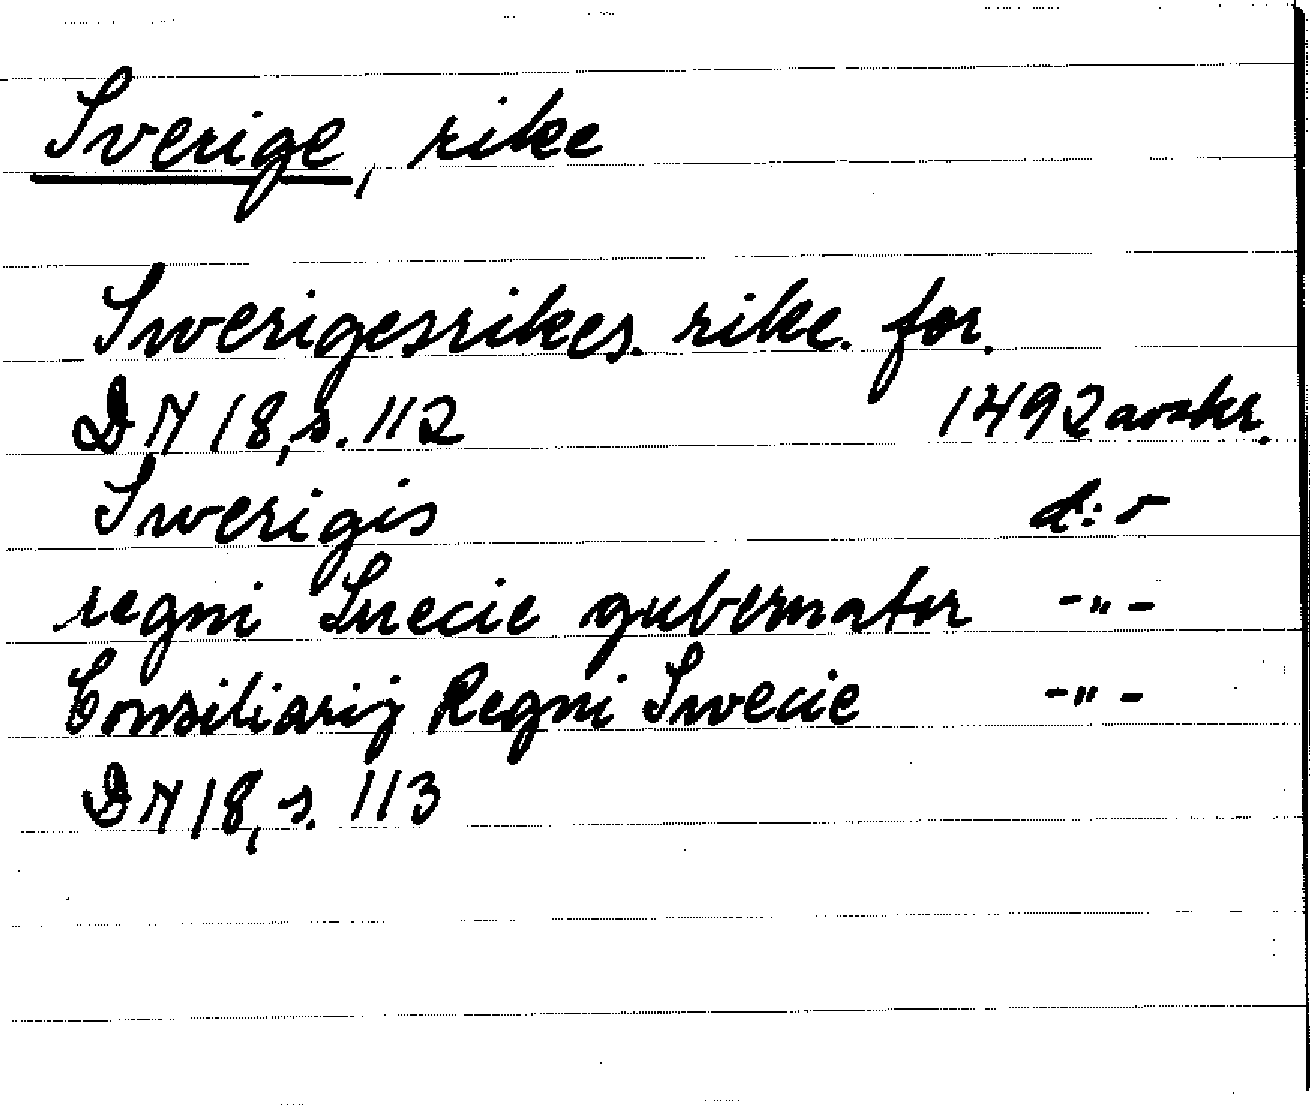 Sverige, rike
Swerigesrikes. rike. for.
DN 18, s. 112 1492 avskr.
Swerigis d:o
regni Suecie gubernator -"-
Consiliarij Regni Swecie -"-
DN 18, s. 113